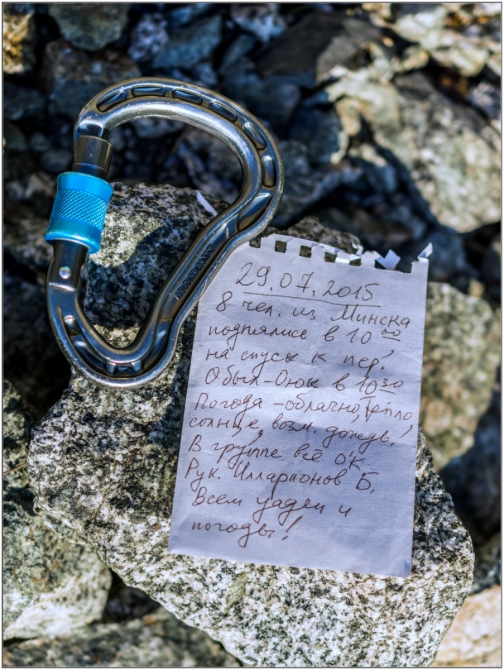 29.07.2015
8 чел. из Минска
поднялись в 10 00
на спуск к пер.
Обыл-Оюк в 10 30
Погода - облачно, тепло
солнце, возм. дождь!
В группе всё О'К.
Рук. Илларионов Б.
Всем удачи и
погоды!